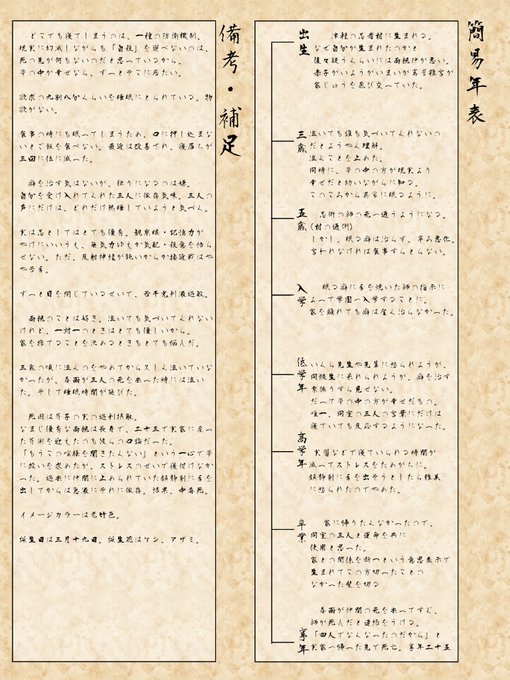 簡易年表
出生
忍者村に生まれる。
なぜ自分が生まれたのかと
後々疑うくらいには両親仲が悪い。
赤子がいようがいまいが罵詈雑言が
家じゅうを飛び交っていた。
三歳
泣いても誰も気づいてくれないの
だとようやく理解。
泣くことを止めた。
同時に、夢の中の方が現実より
幸せだと幼いながらに知る。
このころから異常に眠るように。
五歳
忍術の師の元へ通うようになる。
(村の通例)
しかし、眠る癖は治らず、寧ろ悪化。
言われなければ食事すらとらない。
入学
眠る癖に手を焼いた師の指示に
よって学園へ入学することに。
家を離れても癖は全く治らなかった。
低学年
いくら先生や先輩に怒られようが、
同級生に呆れられようが、癖を治す
素振りすら見せない。
だって夢の中の方が幸せだもの。
唯一、同室の三人の言葉にだけは
寝ていても反応するようになった。
高学年
実習などで寝ていられる時間が
減ってストレスをためがちに。
鎮静剤に手を出そうとしたら
に怒られたのでやめた。
卒業
家に帰りたくなかったので、
同室の三人と運命を共に
使用と思った。
家との関係を断つという意思表示で
生まれてこの方切ったことの
なかった髪を切る
享年
春雨が仲間の元を去ってすぐ、
師が死んだと連絡をうける。
「四人でなくなったのだから」と
実家へ帰った先で死亡。享年二十五
備考・補足
どこでも寝てしまうのは、一種の防衛機制。
現実に幻滅しながらも「自殺」を選べないのは、
死の先が何もないのだと思っているから。
夢の中が幸せなら、ずっとそこに居たい。
欲求の九割八分くらいを睡眠にとられている。物
欲がない。
食事の時にも眠ってしまうため、口に押し込まな
いとご飯を食べない。最近は改善され、寝落ちが
三回に一回に減った。
癖を治す気はないが、独りになるのは嫌。
自分を受け入れてくれた三人に依存気味。三人の
声にだけは、どれだけ熟睡していようと気づく。
実は忍としてはとても優秀。観察眼・記憶力が
やけにいいうえ、無気力ゆえか気配・殺意を悟ら
せない。ただ、反射神経が鈍いからか接近戦はや
や苦手。
ずっと目を閉じているせいで、若干光刺激過敏。
両親のことは好き。泣いても気づいてくれない
けれど、一対一のときはとても優しいから。
家を捨てることを決めるときもとても悩んだ。
三歳の頃に泣くのをやめてから久しく泣いていな
かったが、春雨が三人の元を去った時には泣い
た。そして睡眠時間が延びた。
死因は芥子の実の過剰摂取。
なまじ優秀な両親は疎遠で、二十五で実家に戻っ
た芥術を迎えたのも彼らの口論だった。
「もうこの喧騒を聞きたくない」という一心で夢
に救いを求めたが、ストレスのせいで寝付けなか
った。過去に仲間に止められていた鎮静剤に手を
出してからは急激にそれに依存。結果、中毒死。
イメージカラーは老竹色。
誕生日は五月十九日。誕生花はケシ、アザミ。